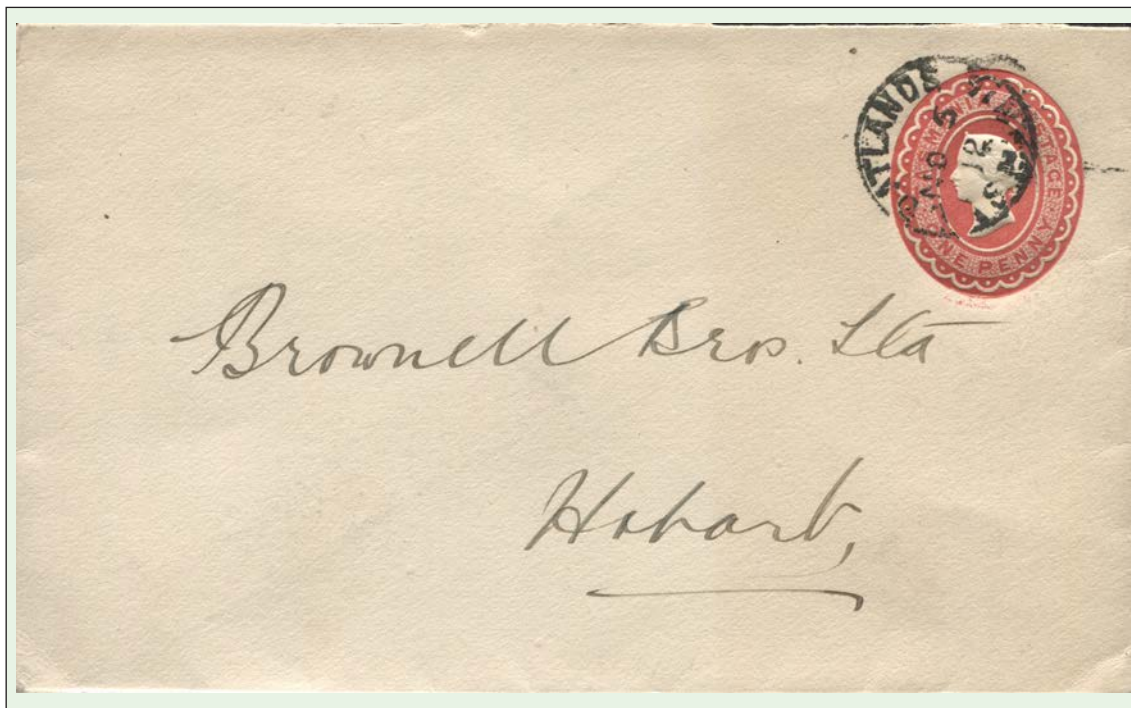 ATLANDS
ONE PENNY
Brownell Bros. Ltd
Hobart,